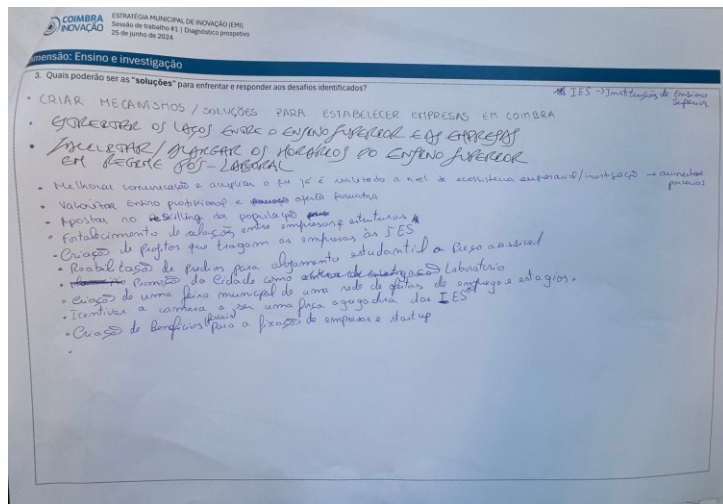 COIMBRA INOVAÇÃO
ESTRATÉGIA MUNICIPAL DE INOVAÇÃO (EMI)
Sessão de trabalho #1 | Diagnóstico prospetivo
25 de junho de 2024
mensão: Ensino e investigação
3. Quais poderão ser as "soluções" para enfrentar e responder aos desafios identificados?
IES → Instituição de Ensino Superior
• CRIAR MECANISMOS / SOLUÇÕES PARA ESTABELECER EMPRESAS EM COIMBRA
• ESTREITAR OS LAÇOS ENTRE O ENSINO SUPERIOR E AS EMPRESAS
• FACILITAR / ALARGAR OS HORÁRIOS DO ENSINO SUPERIOR
EM REGIME PÓS-LABORAL
• Melhorar comunicação e ampliar o que já é realizado a nível de ecossistema empresarial/investigação → aumentar parcerias
• Valorizar Ensino profissional e oferta formativa
• Apostar no Reskilling da população
• Fortalecimento de relações entre empresas e estruturas
• Criação de projetos que tragam as empresas às IES
• Reabilitação de predios para alojamento estudantil a preço acessível
• Promoção da Cidade como Laboratorio
• Criação de uma feira municipal de uma rede de ofertas de emprego e estagios.
• Icentivar a camara a ser uma força agregadora das IES
• Criação de Beneficios para a fixação de empresas e startup